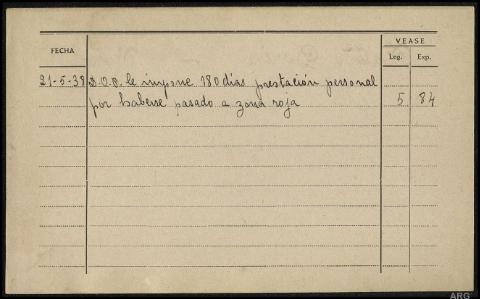 FECHA
VEASE
Leg. Exp.
21-5-38 S.O.P. le impone 180 días prestación personal
por haberse pasado a zona roja 5 84
ARG